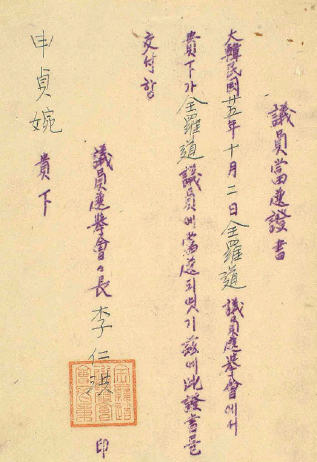 議員當選證書
大韓民國廿五年十月二日全羅道議員選擧會에서
貴下가全羅道議員에當選되엿기玆에此證書를
交付함
議員選擧會々長 李仁洪 印
申貞婉 貴下